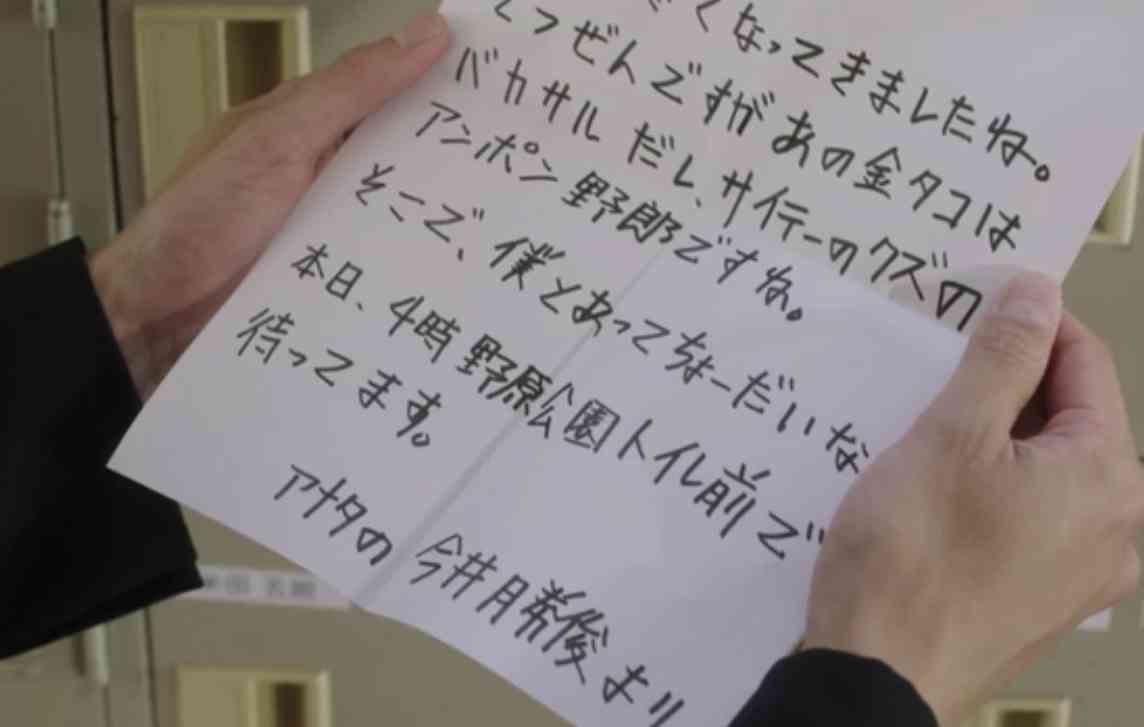 くなってきましたね。
とつぜんですが あの金タコは
バカサル だし、サイテーのクズの
アンポン野郎ですね。
そこで、僕とあってちょーだいな
本日、4時 野原公園トイレ前で
待ってます。
アナタの 今井勝俊より